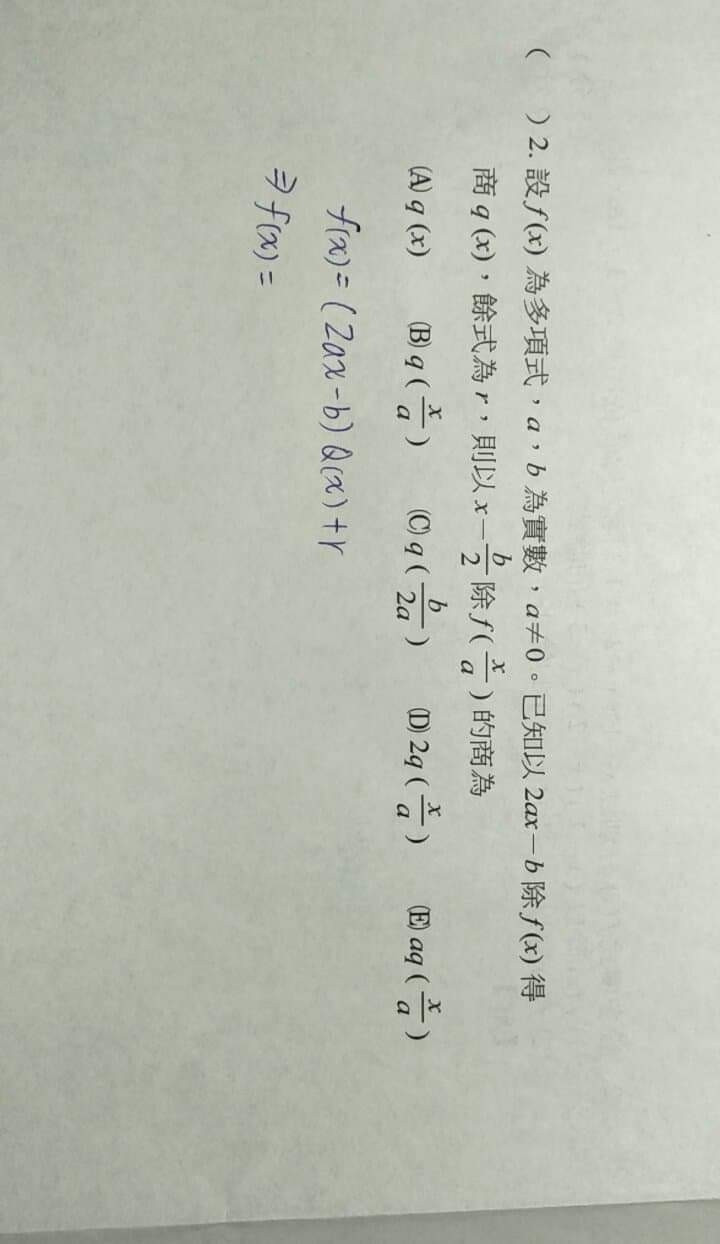 (　　) 2. 設 f (x) 為多項式，a，b 為實數，a≠0。已知以 2ax－b 除 f (x) 得
商 q (x)，餘式為 r，則以 x－b/2 除 f (x/a) 的商為
(A) q (x)　(B) q (x/a)　(C) q (b/2a)　(D) 2q (x/a)　(E) aq (x/a)
f(x) = (2ax-b) Q(x) + r
⇒ f(x) =